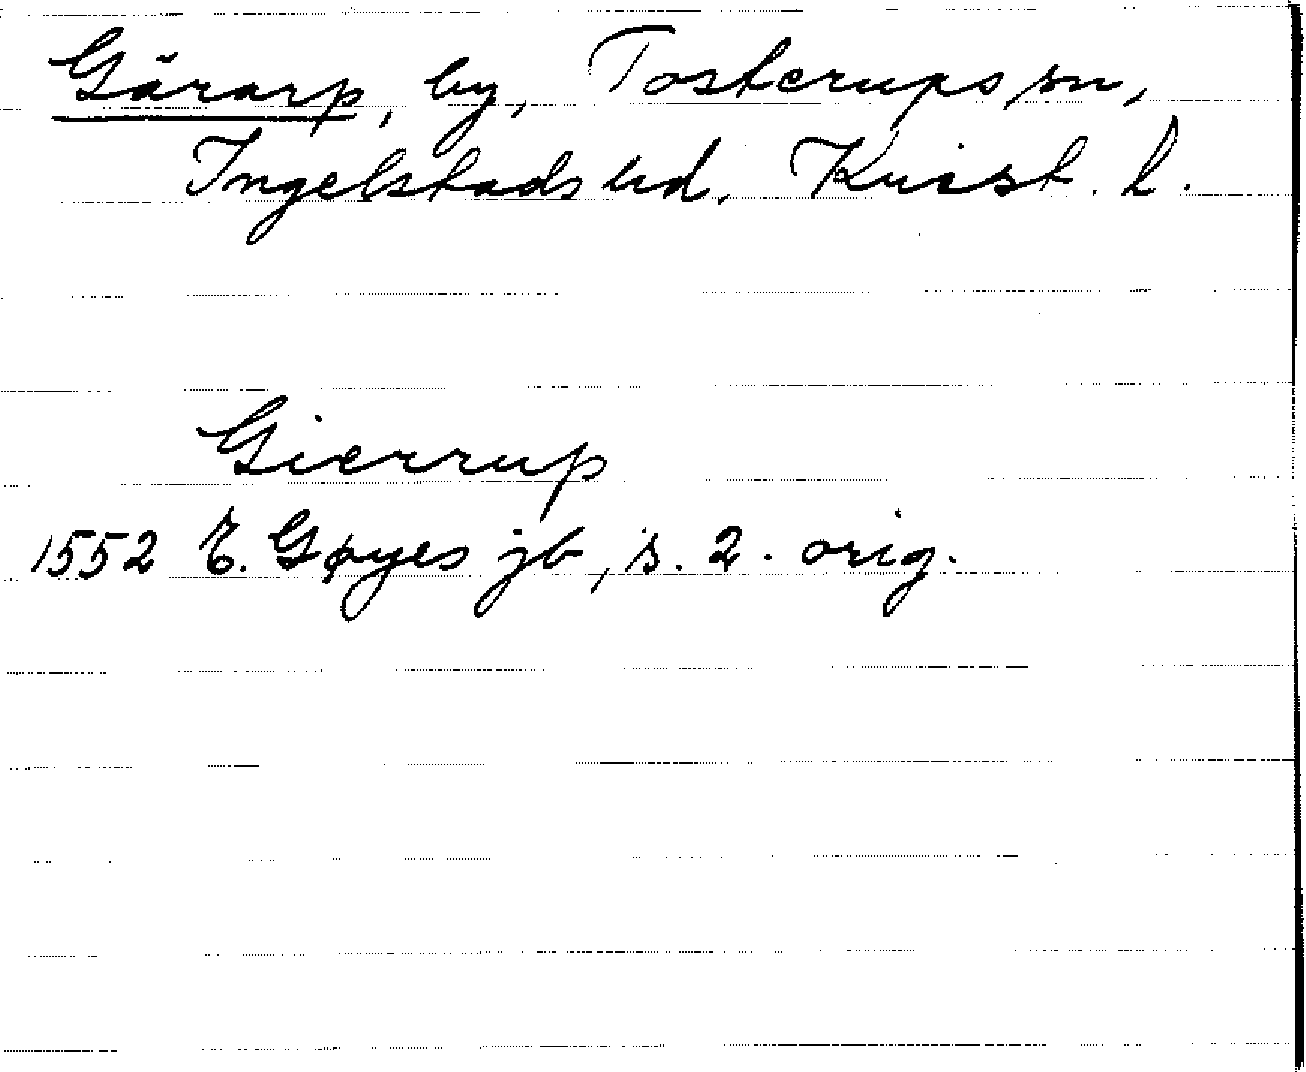 Gärarp, by, Tosterups sn,
Ingelstads hd, Krist. l.
Gierrup
1552 E. Gøyes jb, s. 2. orig.